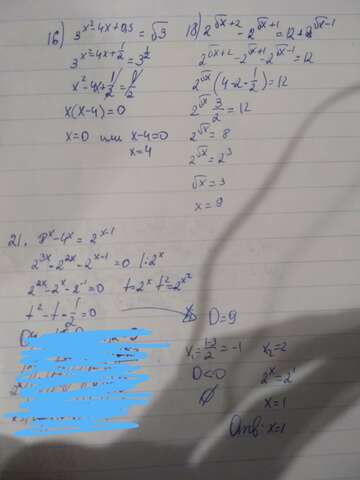 16) 3^{x²-4x+0,5} = √3
3^{x²-4x+1/2} = 3^{1/2}
x²-4x+1/2=1/2
x(x-4)=0
x=0 или x-4=0
x=4
18) 2^{√x+2} - 2^{√x+1} = 12 + 2^{√x-1}
2^{√x+2} - 2^{√x+1} - 2^{√x-1} = 12
2^{√x}(4-2-1/2)=12
2^{√x} 3/2 = 12
2^{√x} = 8
2^{√x} = 2³
√x = 3
x = 9
21. 8^x - 4^x = 2^{x-1}
2^{3x} - 2^{2x} - 2^{x-1} = 0 |:2^x
2^{2x} - 2^x - 2^{-1} = 0 t=2^x t²=2^{x²}
t² - t - 1/2 = 0
D=9
x₁ = = -1 x₂=2
D<0 2^x=2¹
∅ x=1
Отв: x=1